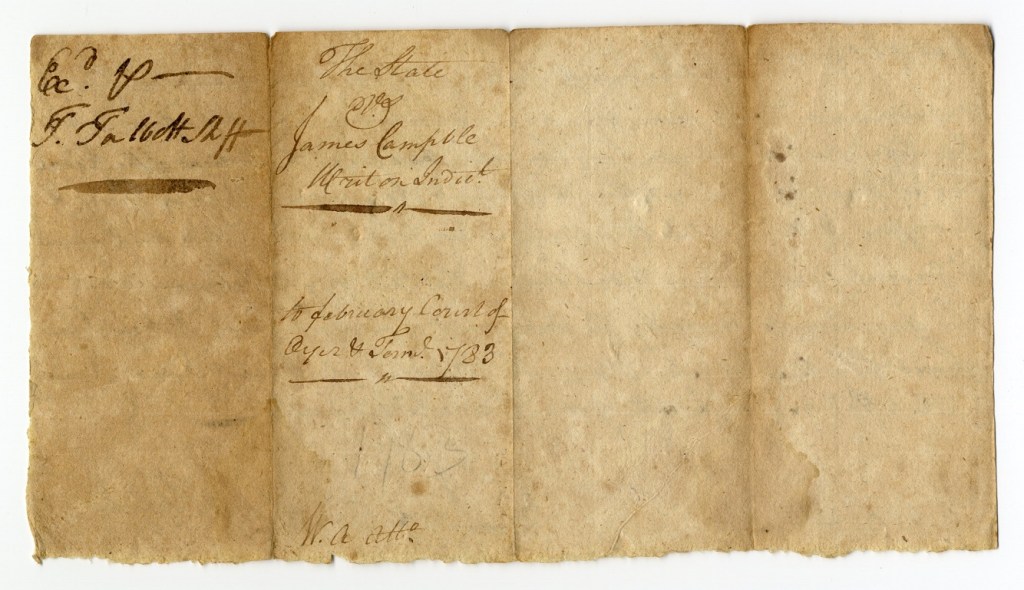 Exd. P
T. Talbott Shff
The State
vs
James Campble
Writ on Indict
to february Court of
Oyer & Term. 1783
1783
W. A Atto